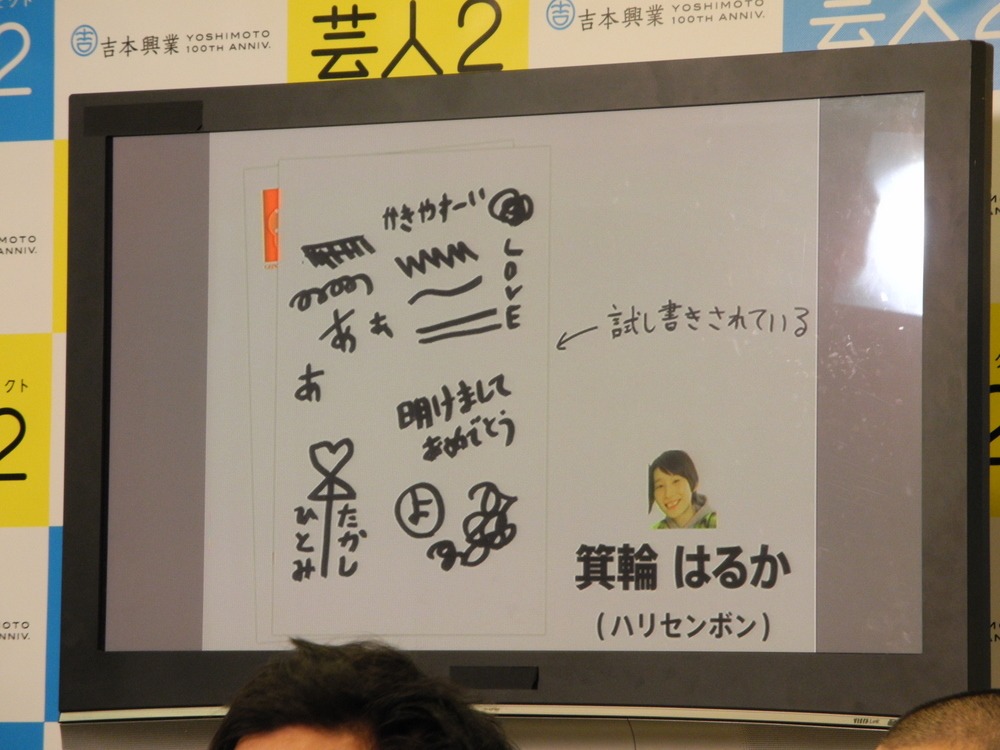 吉本興業 YOSHIMOTO 100TH ANNIV.
芸人2
吉本興業 YOSHIMOTO 100TH ANNIV.
芸人2
2
MOTO
ANNIV.
クト
2
MOTO
NNIV.
かきやすーい
LOVE
あ
あ
あ
試し書きされている
明けまして
おめでとう
よ
たかし
ひとみ
箕輪 はるか
(ハリセンボン)